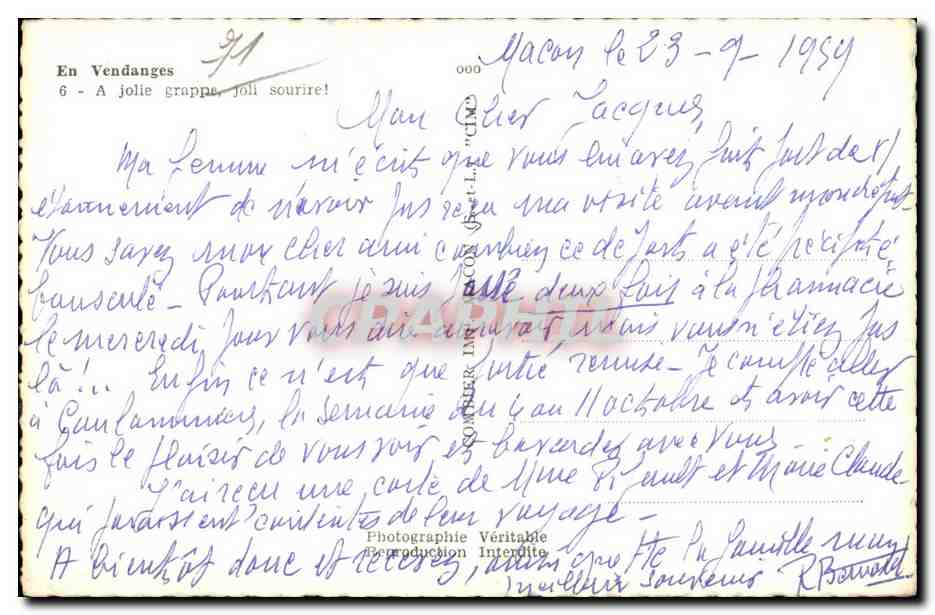 71
Macon le 23-9-1959
En Vendanges
ooo
6 - A jolie grappe, joli sourire!
Mon Cher Jacques,
Ma femme m'écrit que vous lui avez fait part de l'
étonnement de n'avoir pas reçu ma visite avant mon départ.
Vous savez mon cher ami combien ce départ a été précipité,
bousculé - Pourtant je suis passé deux fois à la Pharmacie
le mercredi pour vous dire au revoir, mais vous n'étiez pas
là!... Enfin ce n'est que partie remise - Je compte aller
à Coulommiers, la semaine du 4 au 11 octobre et avoir cette
fois le plaisir de vous voir et bavarder avec vous -
J'ai reçu une carte de Mme et Marie Claude
qui paraissent contentes de leur voyage -
A bientôt donc et recevez, ainsi que tte la famille mon
meilleur souvenir
COMBIER IMP. MACON (S.-et-L.) "CIM"
CPAPHIL
Photographie Véritable
Reproduction Interdite